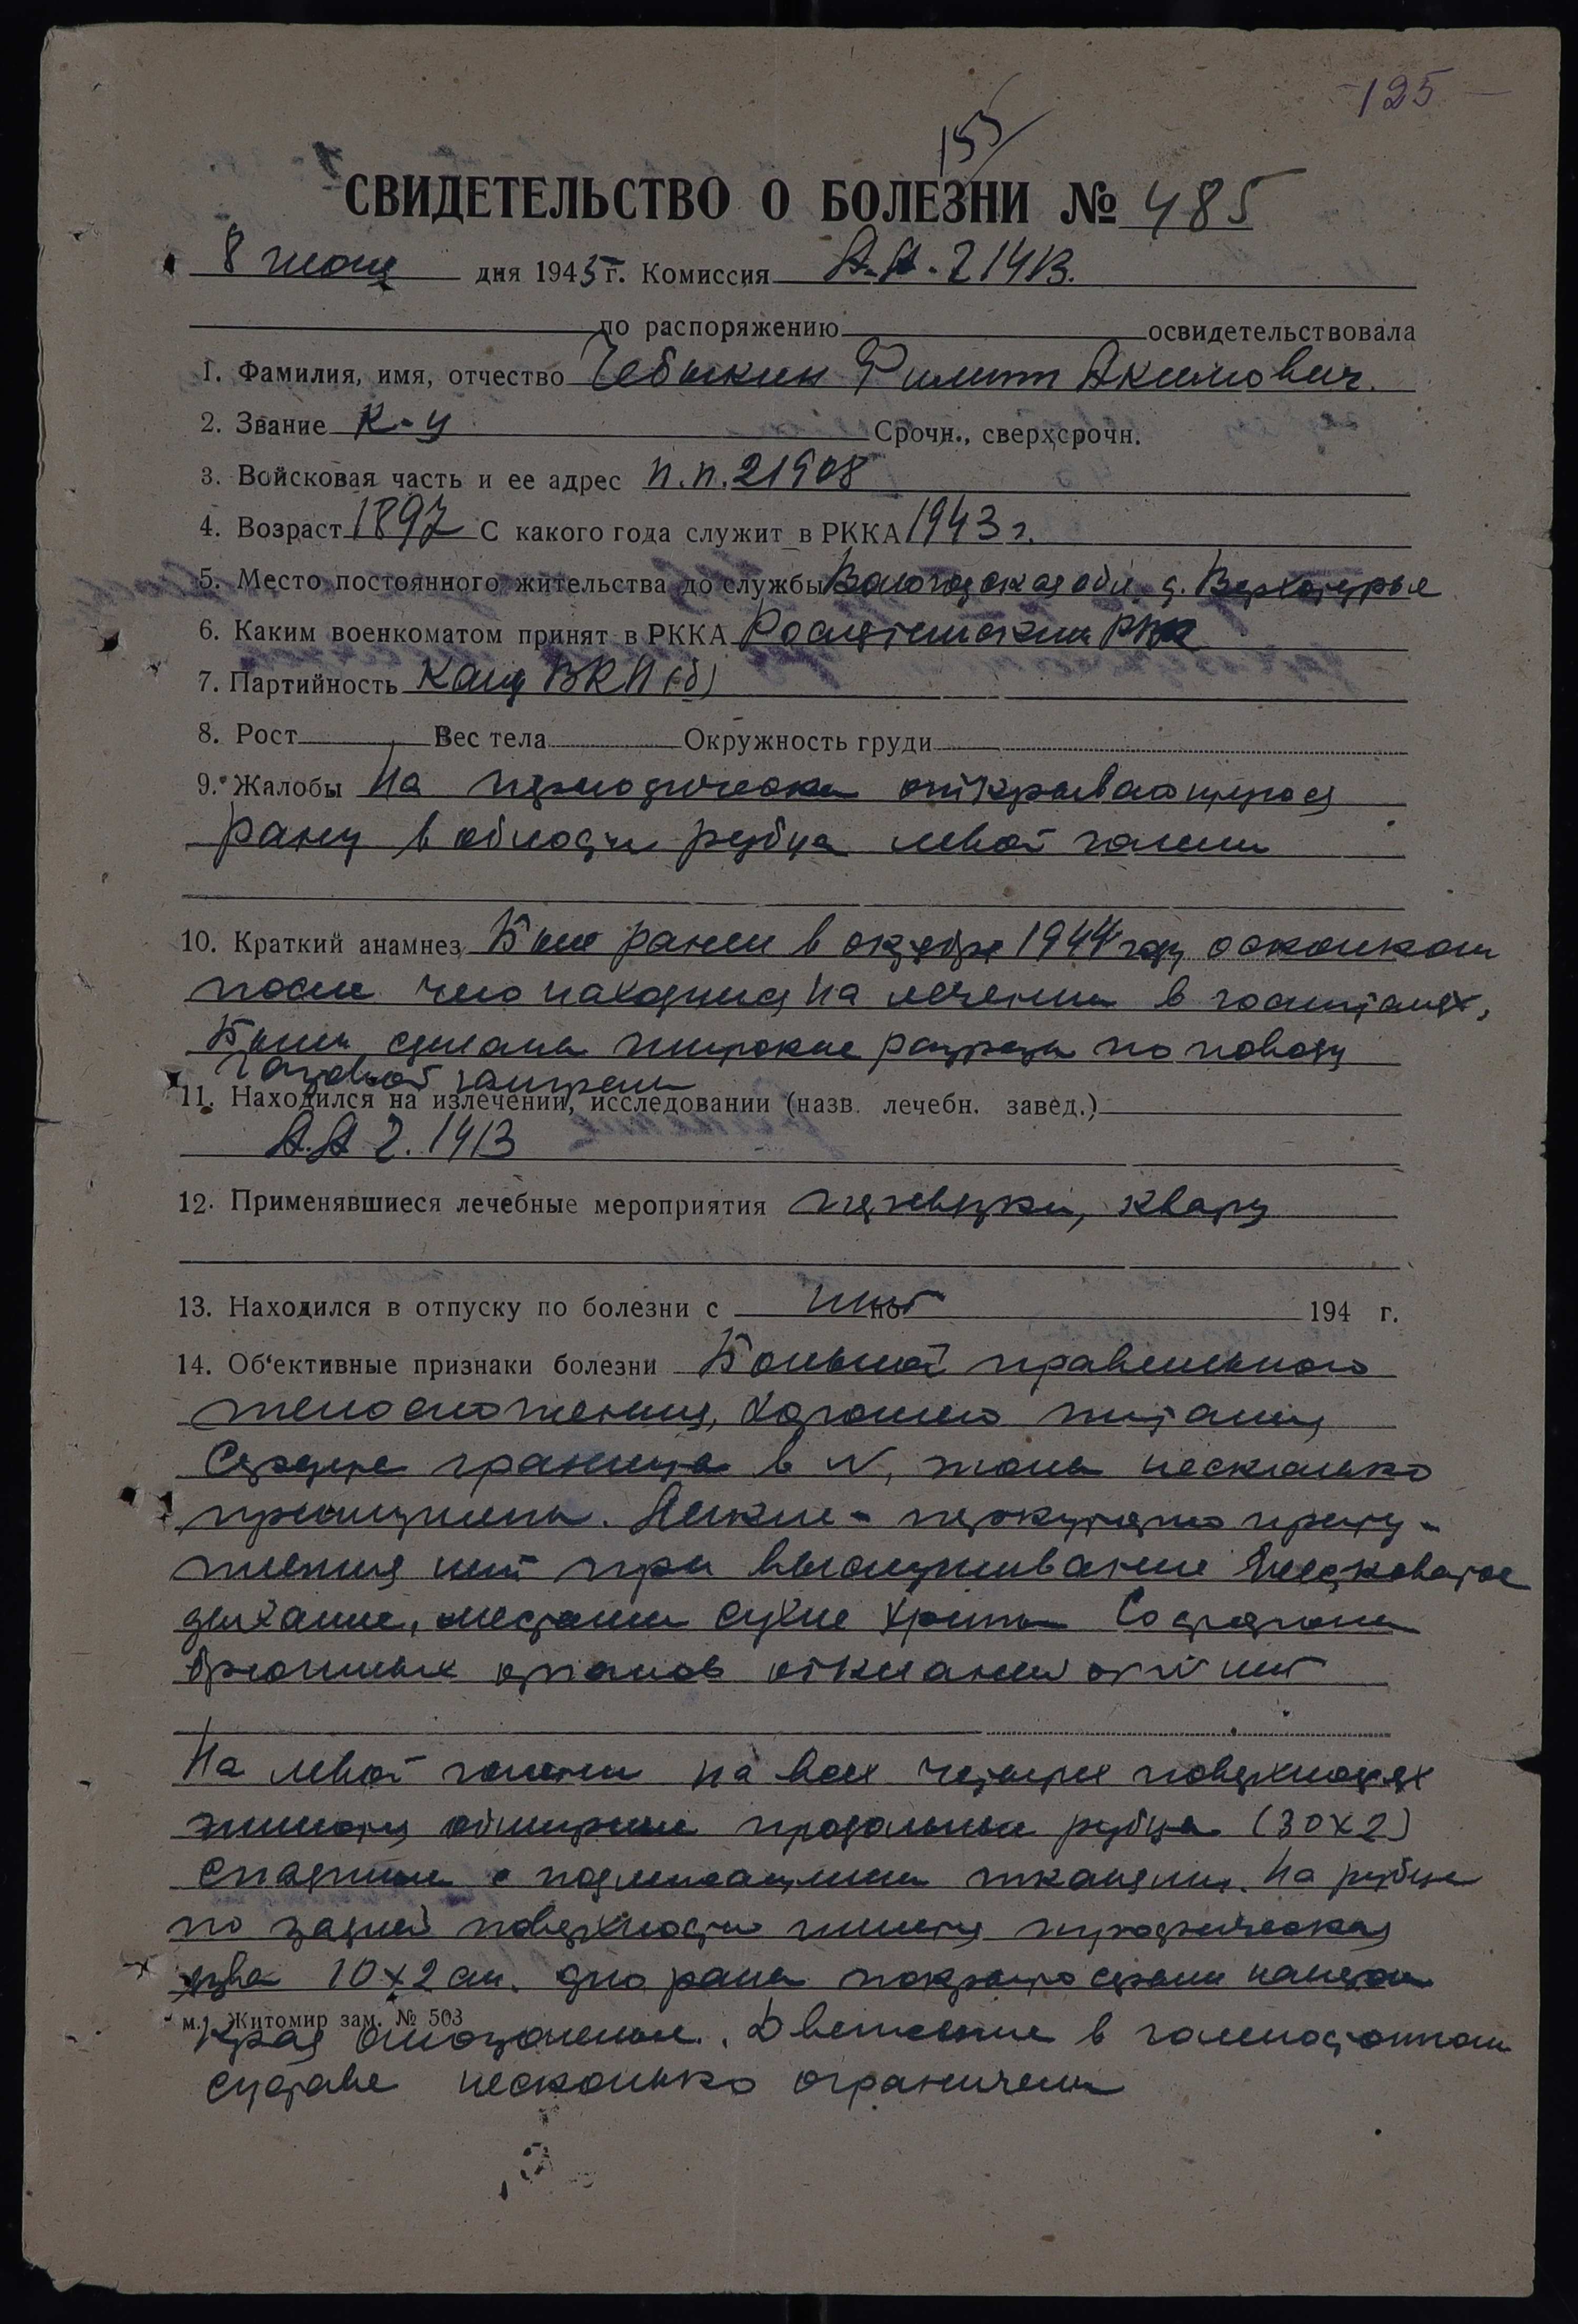 125
155
СВИДЕТЕЛЬСТВО О БОЛЕЗНИ № 485
8 июня дня 1945 г. Комиссия А.А. 2 1413.
по распоряжению освидетельствовала
1. Фамилия, имя, отчество Чебыкин Филипп Акимович.
2. Звание к-ц Срочн., сверхсрочн.
3. Войсковая часть и ее адрес п.п. 21908
4. Возраст 1897 С какого года служит в РККА 1943 г.
5. Место постоянного жительства до службы Вологодская обл. д. Верхотурье
6. Каким военкоматом принят в РККА Рослятинским РВК
7. Партийность Канд ВКП(б)
8. Рост Вес тела Окружность груди
9. Жалобы На периодически открывающуюся
рану в области рубца левой голени
10. Краткий анамнез Был ранен в октябре 1944 году осколком
после чего находился на лечении в госпиталях.
Были сделаны широкие разрезы по поводу
Газовой гангрены
11. Находился на излечении, исследовании (назв. лечебн. завед.)
А.А 2. 1413
12. Применявшиеся лечебные мероприятия перевязки, кварц
13. Находился в отпуску по болезни с нет по 194 г.
14. Об'ективные признаки болезни Больной правильного
телосложения, хорошего питания
Сердце границы в N, тоны несколько
приглушены. Легкие - перкуторно приту-
пления нет при выслушивание жестковатое
дыхание, местами сухие хрипы Со стороны
брюшных органов отклонений от N нет
На левой голени на всех четырех поверхностях
имеются обширные продольные рубцы (30х2)
спаянные с подлежащими тканями. На рубце
по задней поверхности имеется трофическая
язва 10х2 см. дно раны покрыто серым налетом
м. Житомир зам. № 503
Края омозолелые. Движение в голеностопном
суставе несколько ограничены